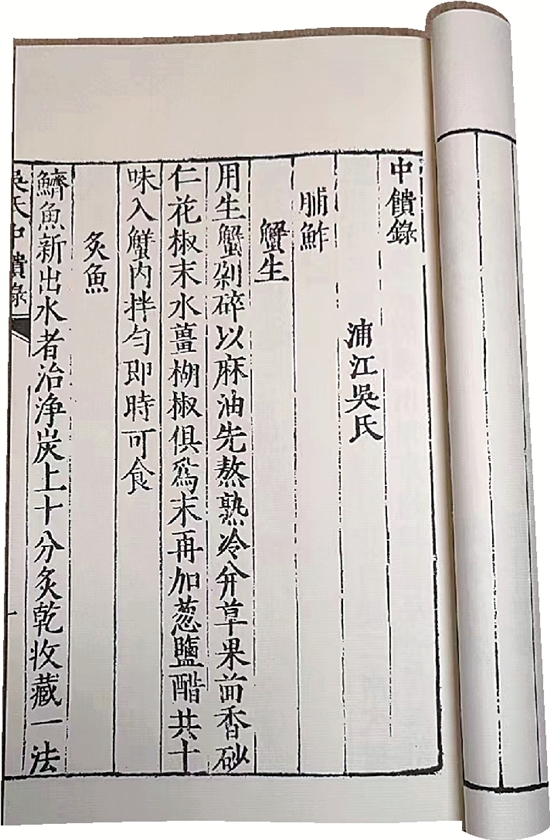 中饋錄
浦江吳氏
脯鮓
蟹生
用生蟹剁碎以麻油先熬熟冷并草果茴香砂
仁花椒末水薑楜椒俱爲末再加葱鹽醋共十
味入蟹内拌匀即時可食
炙魚
鱭魚新出水者治浄炭上十分炙乾收藏一法
吳氏中饋錄
一